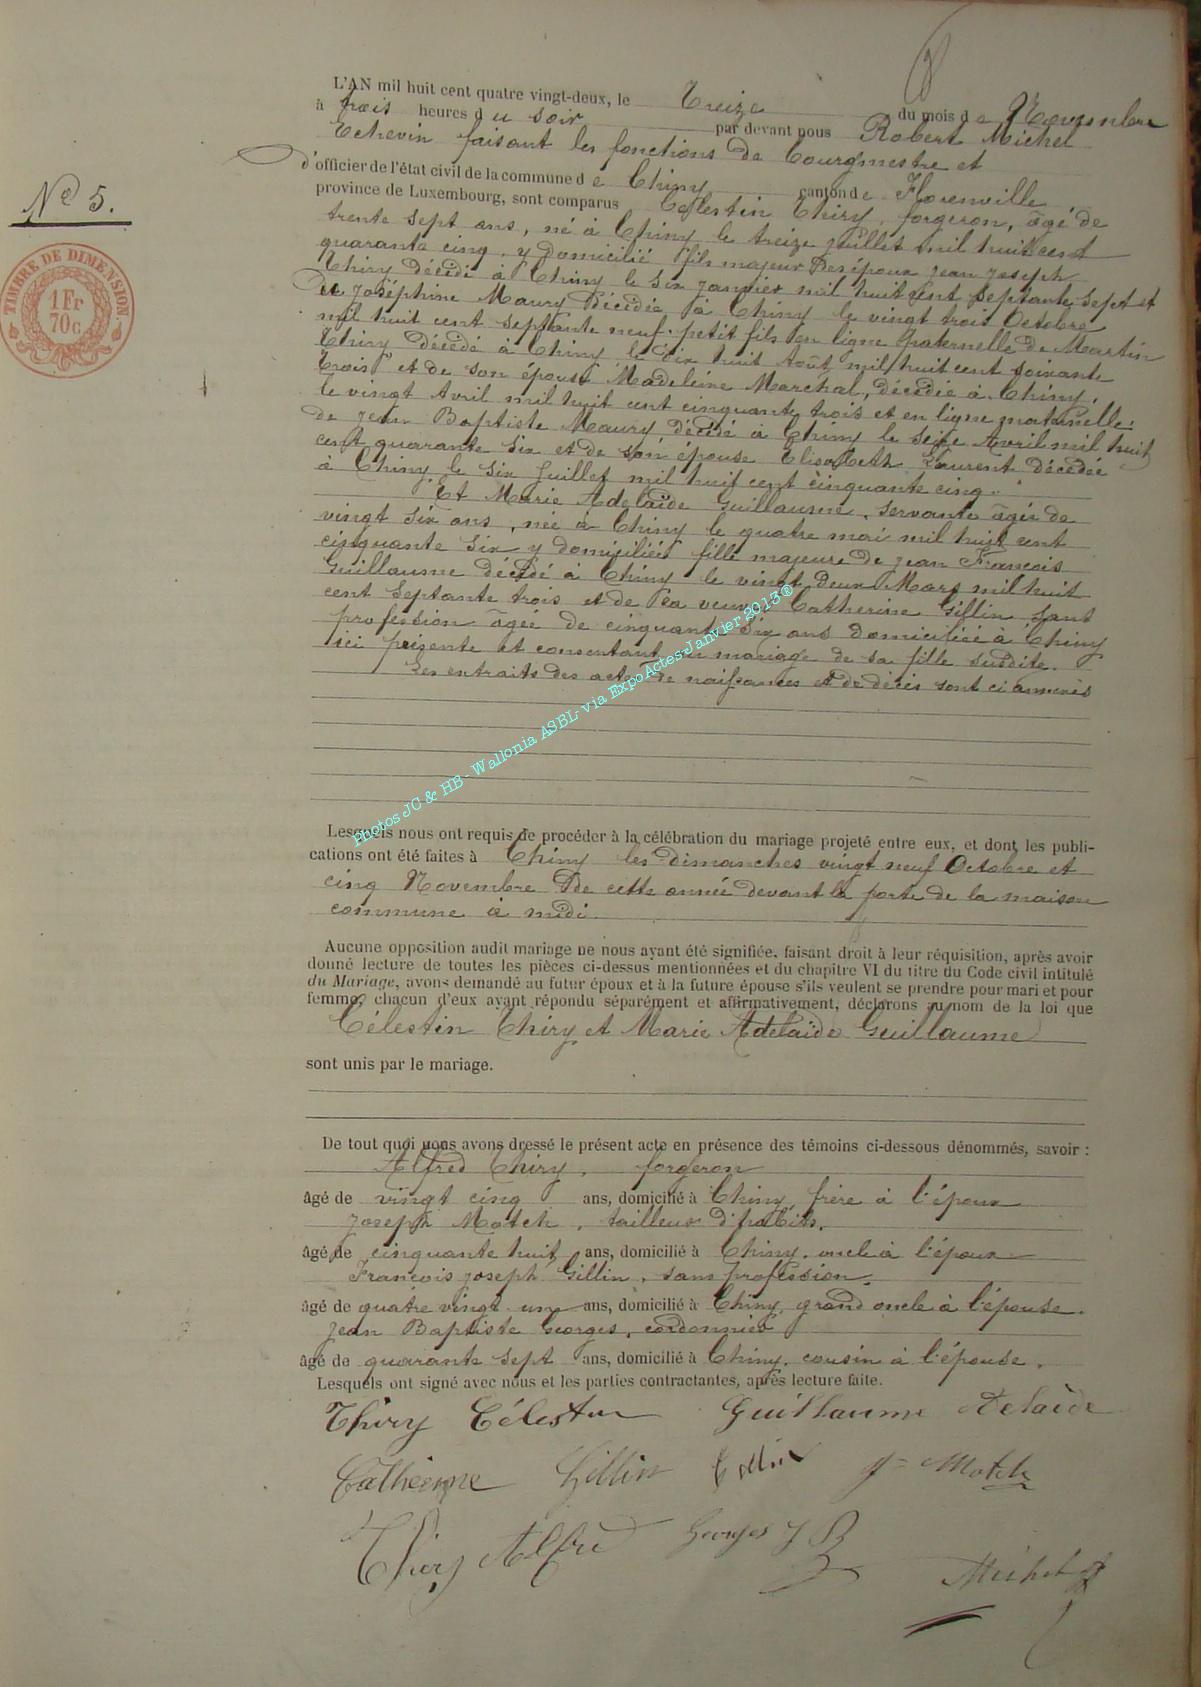 L'AN mil huit cent quatre vingt-deux, le Treize du mois de Novembre
à trois heures du soir par devant nous Robert Michel
Echevin faisant les fonctions de Bourgmestre et
d'officier de l'état civil de la commune de Chiny canton de Florenville
province de Luxembourg, sont comparus Célestin Thiry, forgeron, âgé de
trente sept ans, né à Chiny le treize juillet mil huit cent
quarante cinq, y domicilié fils majeur des époux Jean Joseph
Thiry décédé à Chiny le six janvier mil huit cent septante sept et
de Joséphine Maury décédée à Chiny le vingt trois Octobre
mil huit cent septante neuf. petit fils en ligne paternelle de Martin
Thiry décédé à Chiny le dix huit Août mil huit cent soixante
trois et de son épouse Madeleine Maréchal, décédée à Chiny,
le vingt Avril mil huit cent cinquante trois et en ligne maternelle:
de Jean Baptiste Maury décédé à Chiny le seize Avril mil huit
cent quarante six et de son épouse Elisabeth Laurent décédée
à Chiny le six Juillet mil huit cent cinquante cinq.
Et Marie Adelaïde Guillaume, servante âgée de
vingt six ans, née à Chiny le quatre mai mil huit cent
cinquante six y domiciliée fille majeure de Jean François
Guillaume décédé à Chiny le vingt deux Mars mil huit
cent septante trois et de sa veuve Catherine Gillin sans
profession âgée de cinquante six ans domiciliée à Chiny
ici présente et consentant au mariage de sa fille susdite.
Les extraits des actes de naissances et de décès sont ci annexés
N° 5.
TIMBRE DE DIMENSION
1 Fr
70 c
Photos JC & HB - Wallonia ASBL- via ExpoActes-Janvier 2013®
Lesquels nous ont requis de procéder à la célébration du mariage projeté entre eux, et dont les publi-
cations ont été faites à Chiny les dimanches vingt neuf Octobre et
cinq Novembre de cette année devant la porte de la maison
commune à midi
Aucune opposition audit mariage ne nous ayant été signifiée, faisant droit à leur réquisition, après avoir
donné lecture de toutes les pièces ci-dessus mentionnées et du chapitre VI du titre du Code civil intitulé
du Mariage, avons demandé au futur époux et à la future épouse s'ils veulent se prendre pour mari et pour
femme, chacun d'eux ayant répondu séparément et affirmativement, déclarons au nom de la loi que
Célestin Thiry et Marie Adelaïde Guillaume
sont unis par le mariage.
De tout quoi nous avons dressé le présent acte en présence des témoins ci-dessous dénommés, savoir :
Alfred Thiry, forgeron
âgé de vingt cinq ans, domicilié à Chiny, frère à l'époux
Joseph Motch, tailleur d'habits.
âgé de cinquante huit ans, domicilié à Chiny. oncle à l'époux
François Joseph Gillin, sans profession.
âgé de quatre vingt un ans, domicilié à Chiny, grand oncle à l'épouse.
Jean Baptiste Georges, cordonnier
âgé de quarante sept ans, domicilié à Chiny. cousin à l'épouse.
Lesquels ont signé avec nous et les parties contractantes, après lecture faite.
Thiry Célestin Guillaume Adelaïde
Catherine Gillin Gillin J= Motch
Thiry Alfred Georges J B
Michel